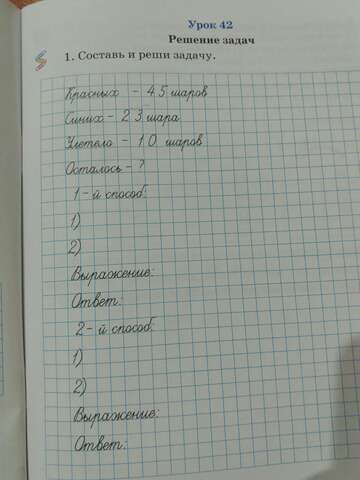 Урок 42
Решение задач
1. Составь и реши задачу.
Красных - 45 шаров
Синих - 23 шара
Улетело - 10 шаров
Осталось - ?
1-й способ:
1)
2)
Выражение:
Ответ:
2-й способ:
1)
2)
Выражение:
Ответ: